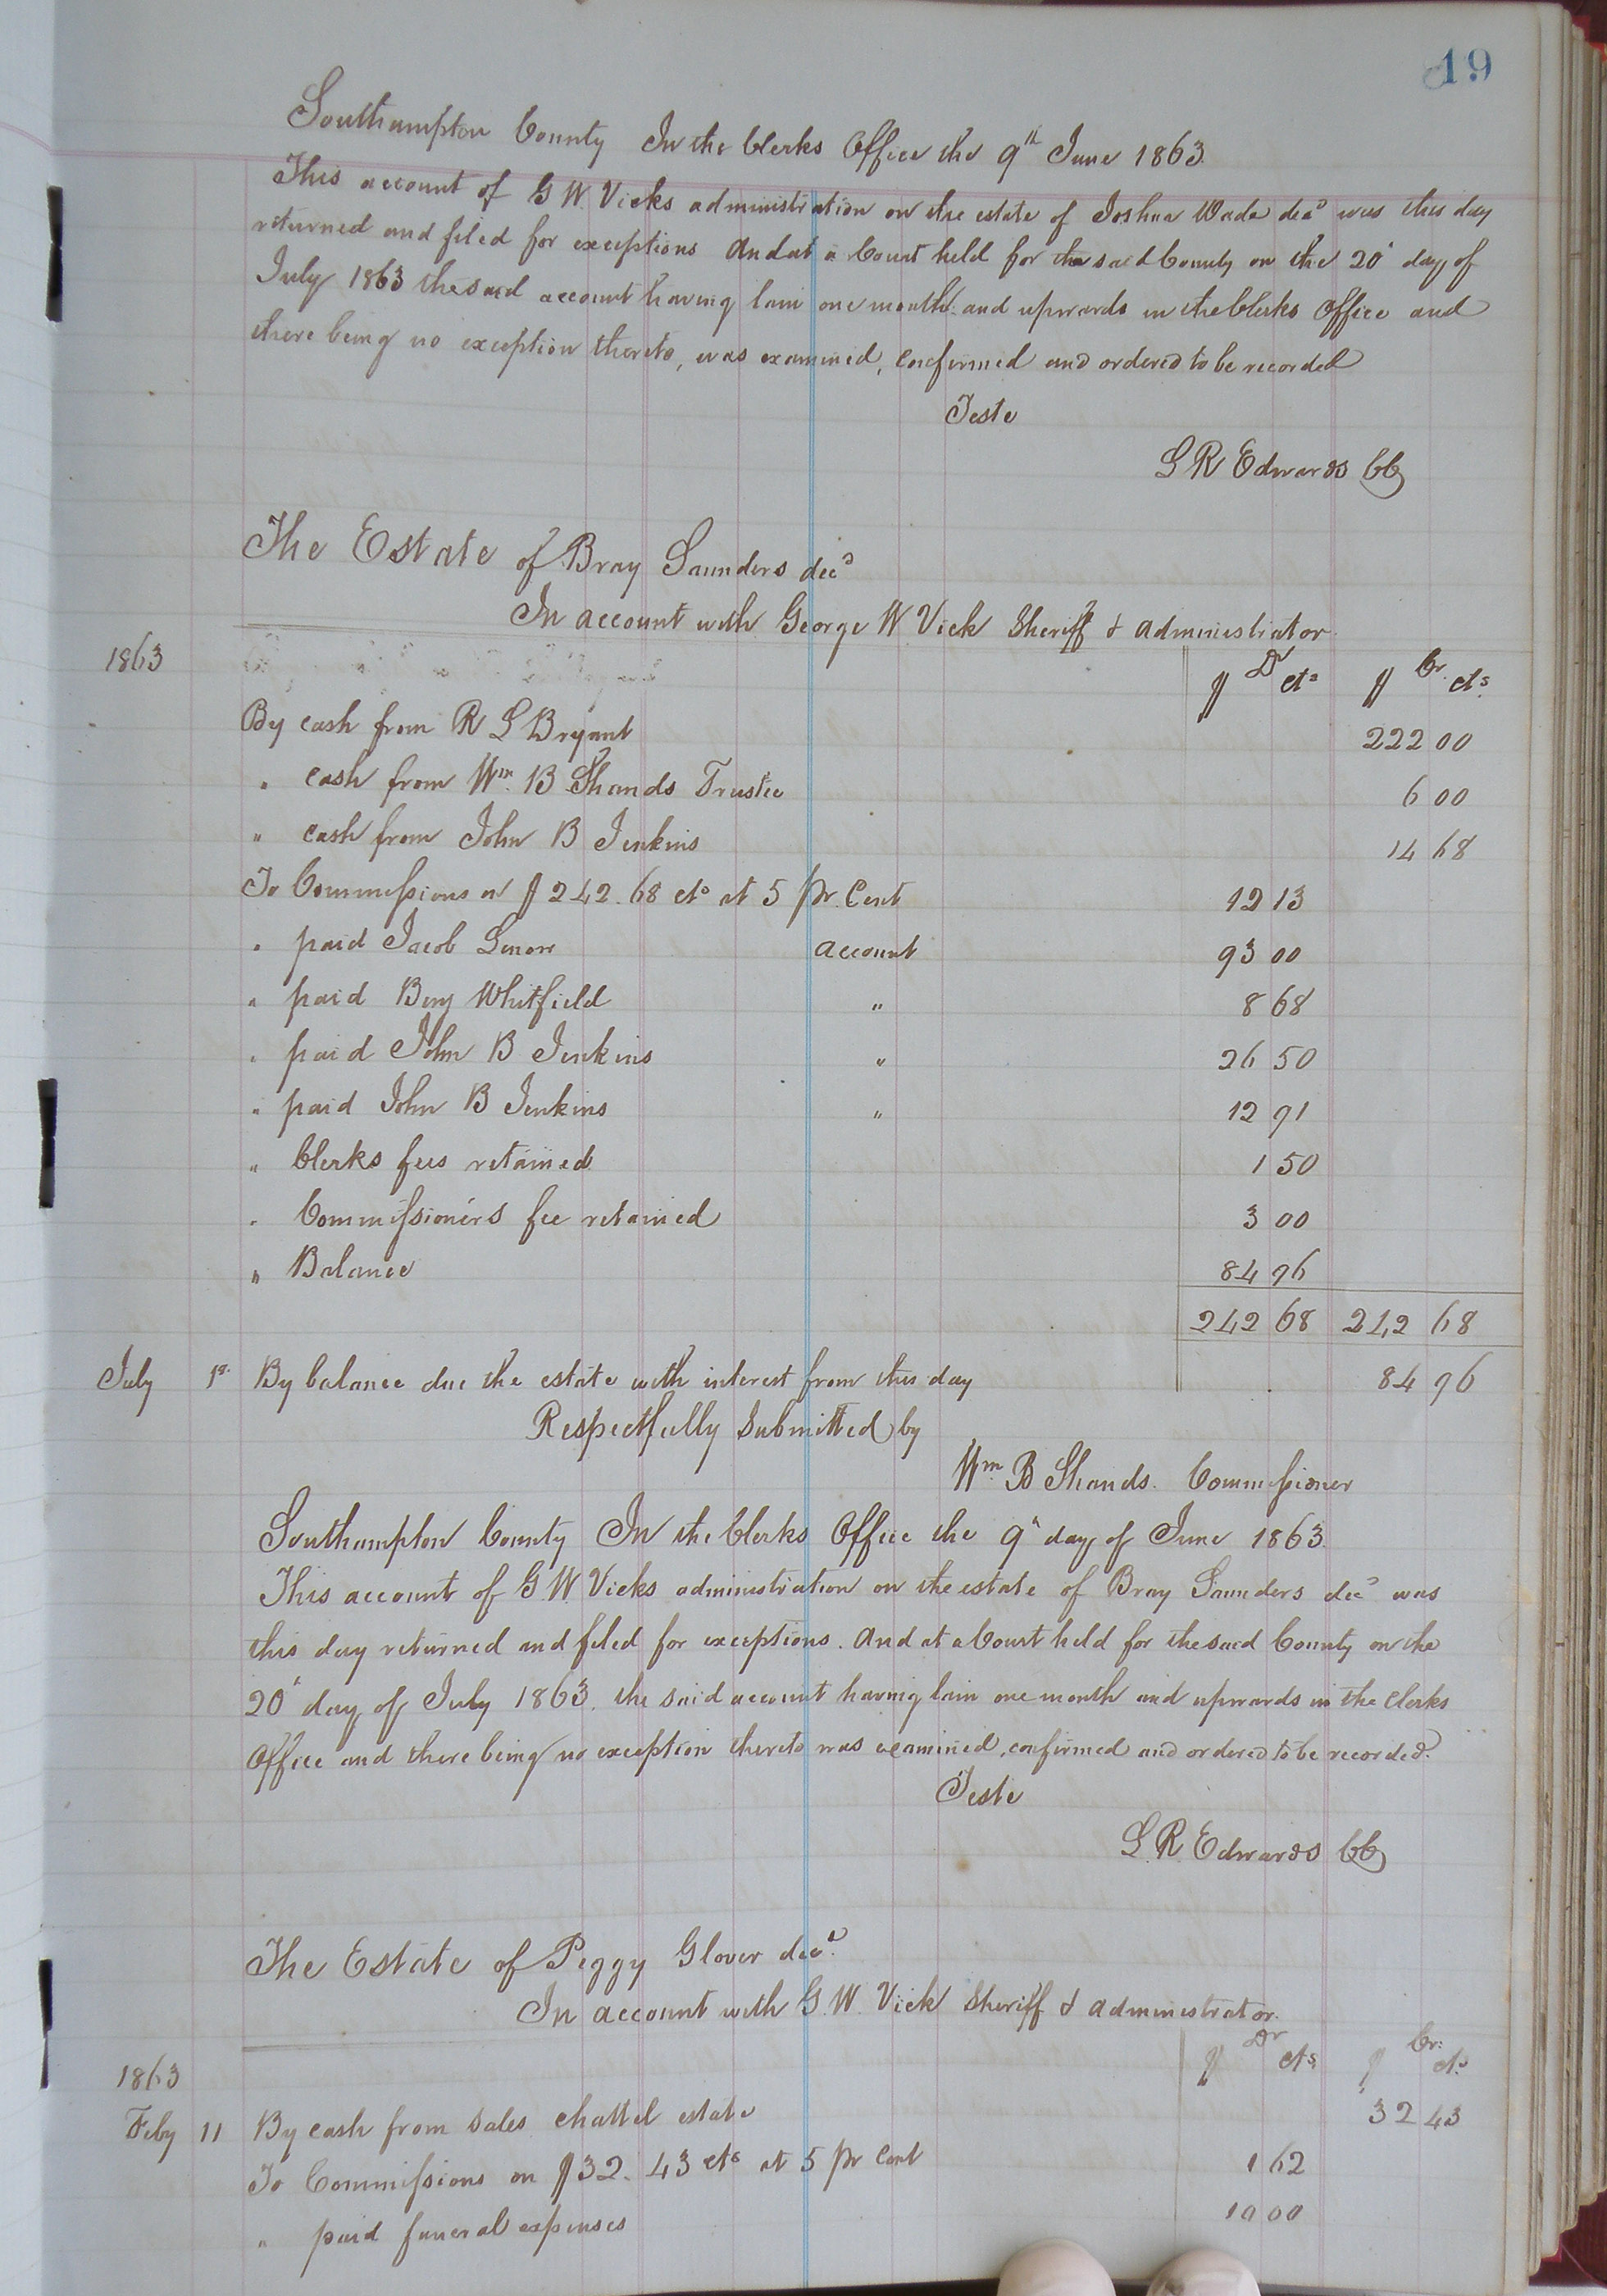 19
Southampton County In the Clerks Office the 9th June 1863.
This account of G W. Vicks administration on the estate of Joshua Wade decd was this day
returned and filed for exceptions And at a Court held for the said County on the 20" day of
July 1863 the said account having lain one month and upwards in the Clerks Office and
there being no exception thereto, was examined, confirmed and ordered to be recorded
Teste
L R Edwards CC
The Estate of Bray Saunders decd
In account with George W Vick Sheriff & administrator
1863 $ Dr cts $ Cr. cts.
By cash from R L Bryant 222 00
" cash from Wm. B Shands Trustee 6 00
" cash from John B Jenkins 14 68
To Commissions on $242.68 cts at 5 pr. Cent 12 13
" paid Jacob account 93 00
" paid Benj Whitfield " 8 68
" paid John B Jenkins " 26 50
" paid John B Jenkins " 12 91
" Clerks fees retained 1 50
" Commissioners fee retained 3 00
" Balance 84 96
242 68 242 68
July 1st By balance due the estate with interest from this day 84 96
Respectfully submitted by
Wm. B Shands. Commissioner
Southampton County In the Clerks Office the 9" day of June 1863.
This account of G. W. Vicks administration on the estate of Bray Saunders decd was
this day returned and filed for exceptions. And at a Court held for the said County on the
20" day of July 1863. the said account having lain one month and upwards in the Clerks
Office and there being no exception thereto was examined, confirmed and ordered to be recorded.
Teste
L. R. Edwards CC
The Estate of Peggy Glover decd.
In account with G. W. Vick Sheriff & administrator.
1863 $ Dr cts $ Cr. cts
Feby 11 By cash from sales chattel estate 32 43
To Commissions on $32.43 cts at 5 pr Cent 1 62
" paid funeral expenses 10 00